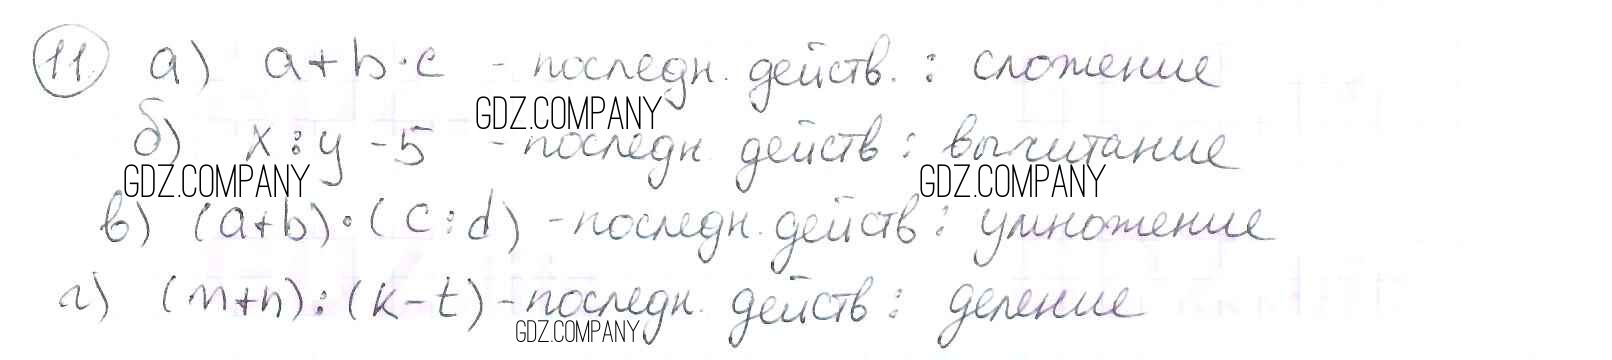 11. а) a+b·c - последн. действ. : сложение
GDZ.COMPANY
б) x:y-5 - последн действ : вычитание
GDZ.COMPANY GDZ.COMPANY
в) (a+b)·(c:d) - последн. действ : умножение
г) (m+n):(k-t) - последн. действ : деление
GDZ.COMPANY